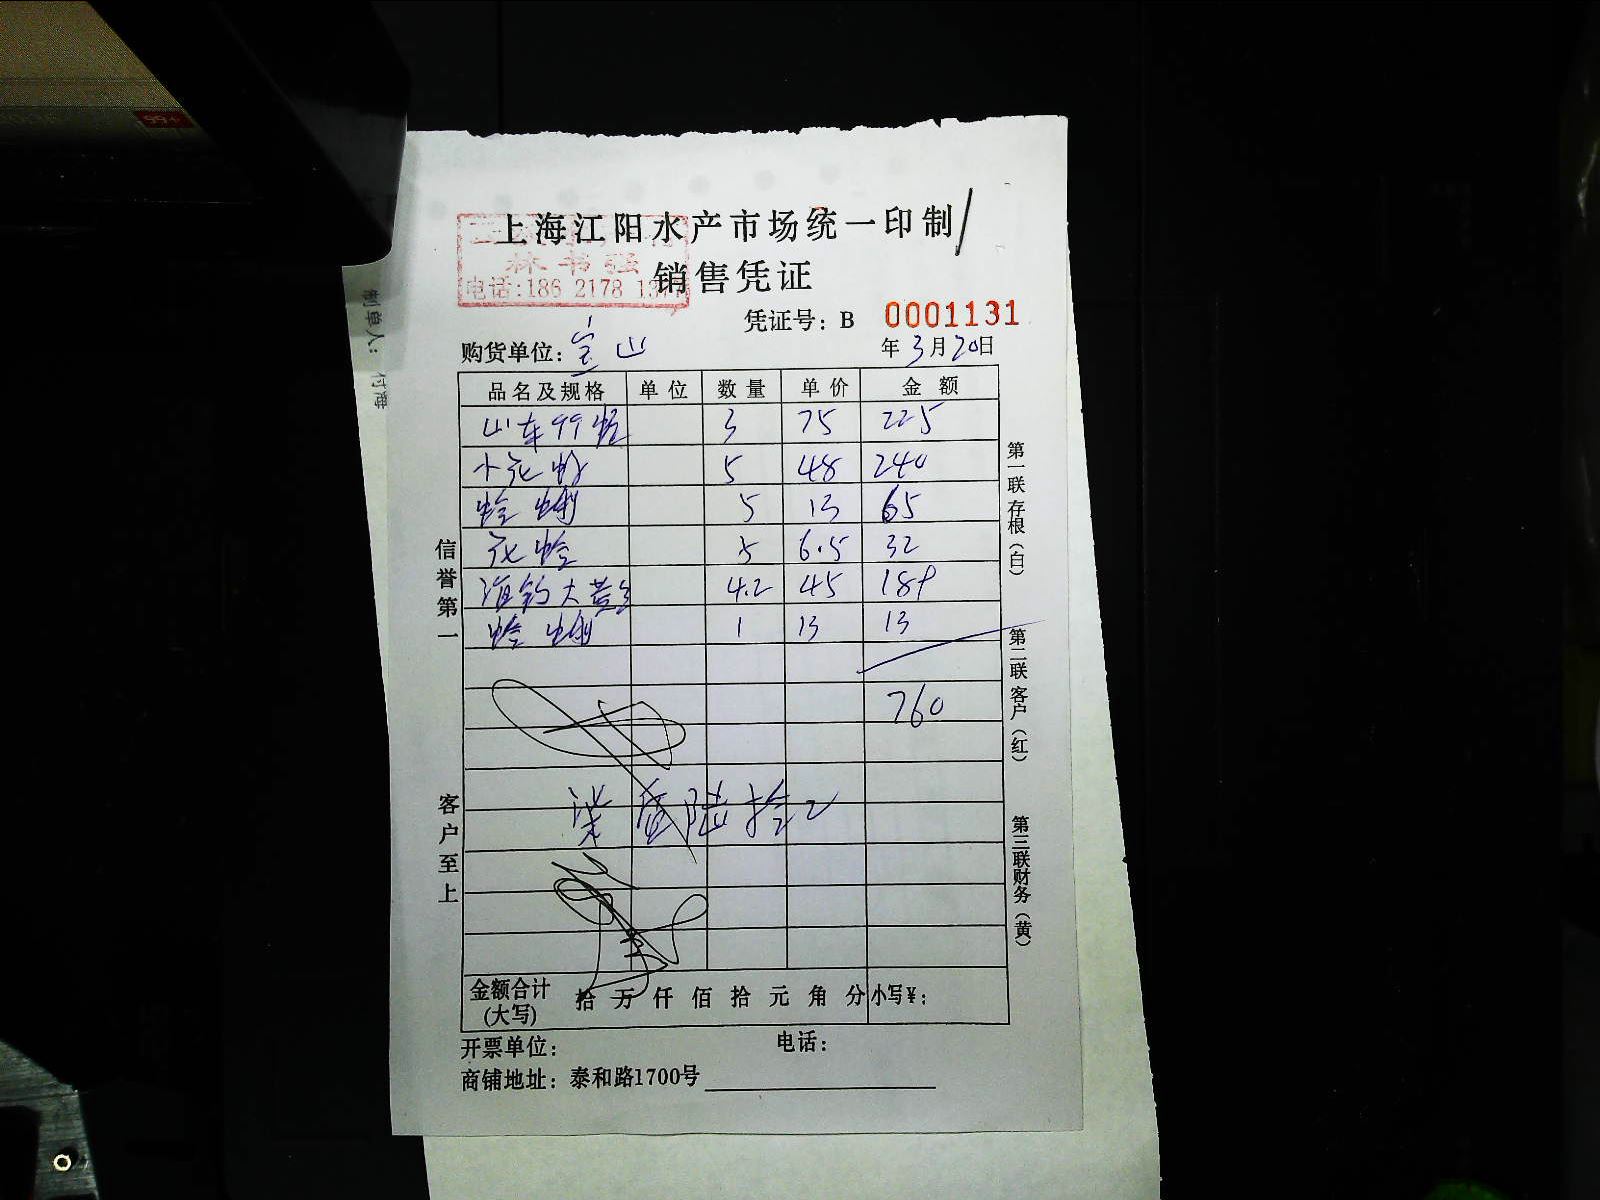 99+
上海江阳水产市场统一印制
林书强
销售凭证
电话:186 2178 137
凭证号：B 0001131
购货单位：宝山 年3月20日
品名及规格 单位 数量 单价 金额
山东99蛏 3 75 225
小花 5 48 240
蛤蜊 5 13 65
花蛤 5 6.5 32
海钓大黄 4.2 45 189
蛤蜊 1 13 13
760
柒佰陆拾元
信誉第一
客户至上
第一联存根（白）
第二联客户（红）
第三联财务（黄）
金额合计(大写) 拾 万 仟 佰 拾 元 角 分 小写¥：
开票单位： 电话：
商铺地址：泰和路1700号
制单人：付